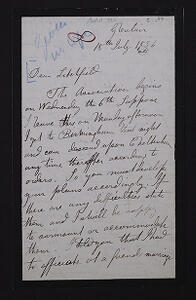 Dear Litchfield
The Association begins
on Wednesday the 6th Suppose
I leave this on Monday afternoon
I get to Birmingham that night
and can descend upon
any time thereafter according to
orders. So you must develope
your plans accordingly. If
there are any difficulties state
them and I shall be happy
to surmount or accommodate
them. I told you that I had
to officiate at a friend marriage